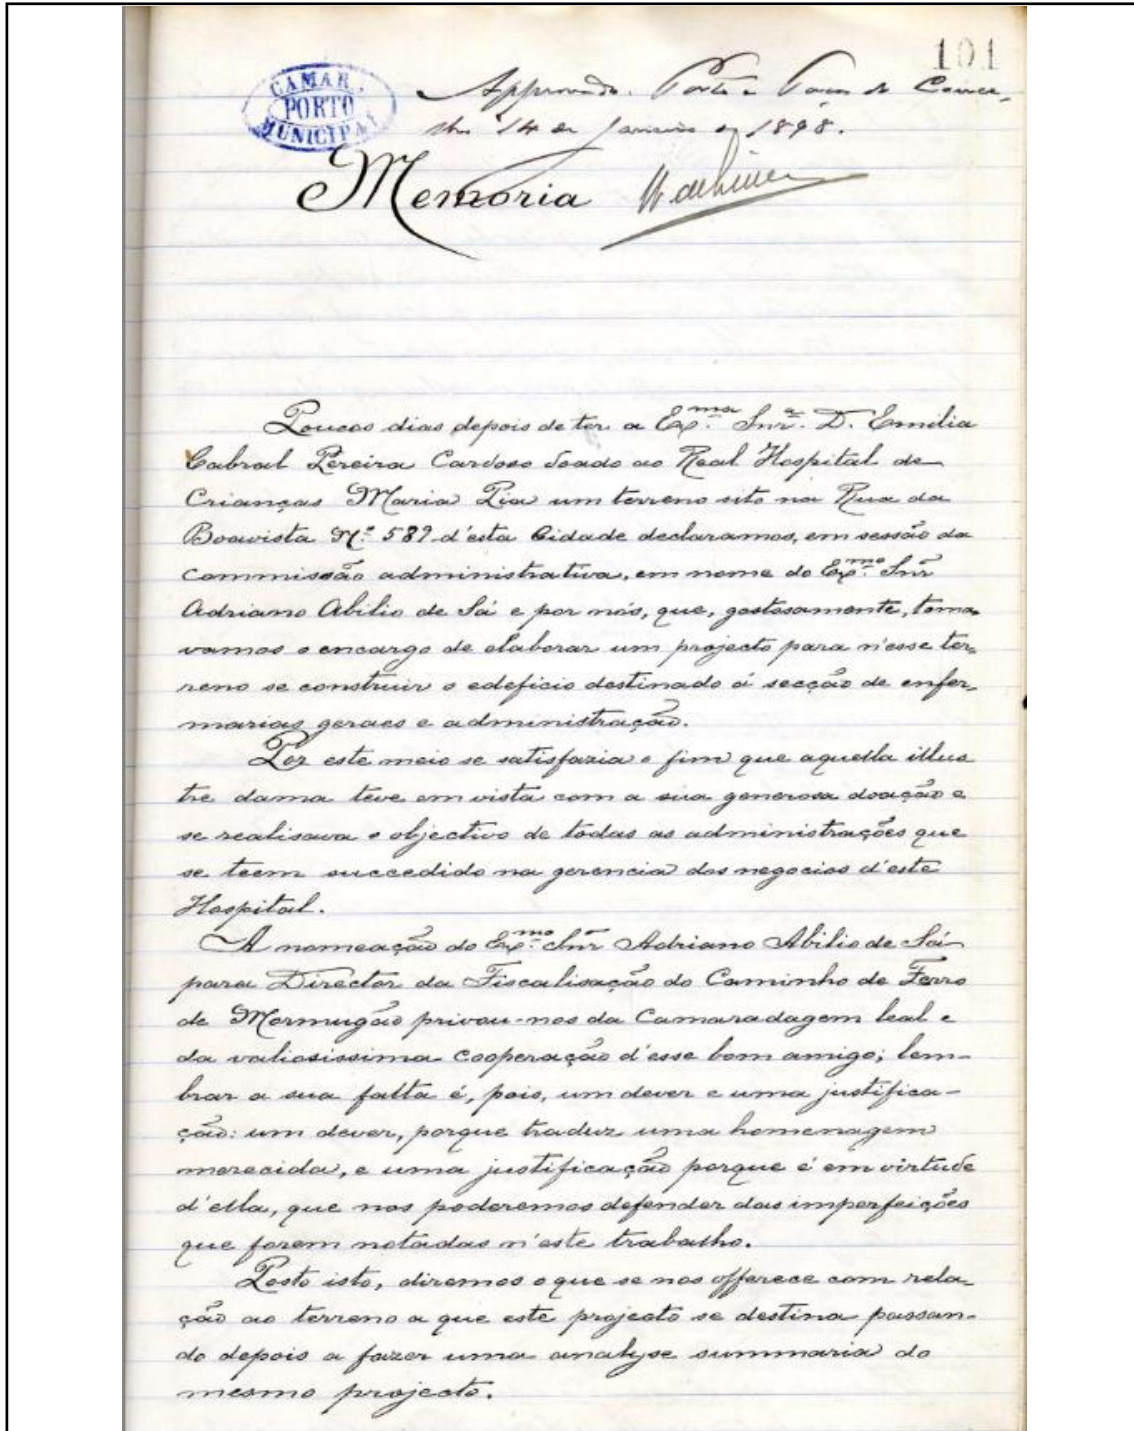 101
CAMARA
PORTO
MUNICIPAL
Approvado. Porto e Paços do Concelho 14 de Janeiro de 1898.
Memoria
Poucos dias depois de ter a Exma. Snra. D. Emilia
Cabral Pereira Cardoso doado ao Real Hospital de
Crianças Maria Pia um terreno sito na Rua da
Boavista Nº 589 d'esta Cidade declaramos, em sessão da
commissão administrativa, em nome do Exmo. Snr
Adriano Abilio de Sá e por nós, que, gostosamente, toma-
vamos o encargo de elaborar um projecto para n'esse ter-
reno se construir o edeficio destinado á secção de enfer-
marias geraes e administração.
Por este meio se satisfazia o fim que aquella illus
tre dama teve em vista com a sua generosa doação e
se realisava o objectivo de todas as administrações que
se teem succedido na gerencia dos negocios d'este
Hospital.
A nomeação do Exmo. Snr Adriano Abilio de Sá
para Director da Fiscalisação do Caminho de Ferro
de Mormugão privou-nos da Camaradagem leal e
da valiosissima cooperação d'esse bom amigo; lem-
brar a sua falta é, pois, um dever e uma justifica-
ção: um dever, porque traduz uma homenagem
merecida, e uma justificação porque é em virtude
d'ella, que nos poderemos defender das imperfeições
que forem notadas n'este trabalho.
Posto isto, diremos o que se nos offerece com rela-
ção ao terreno a que este projecto se destina passan-
do depois a fazer uma analyse summaria do
mesmo projecto.